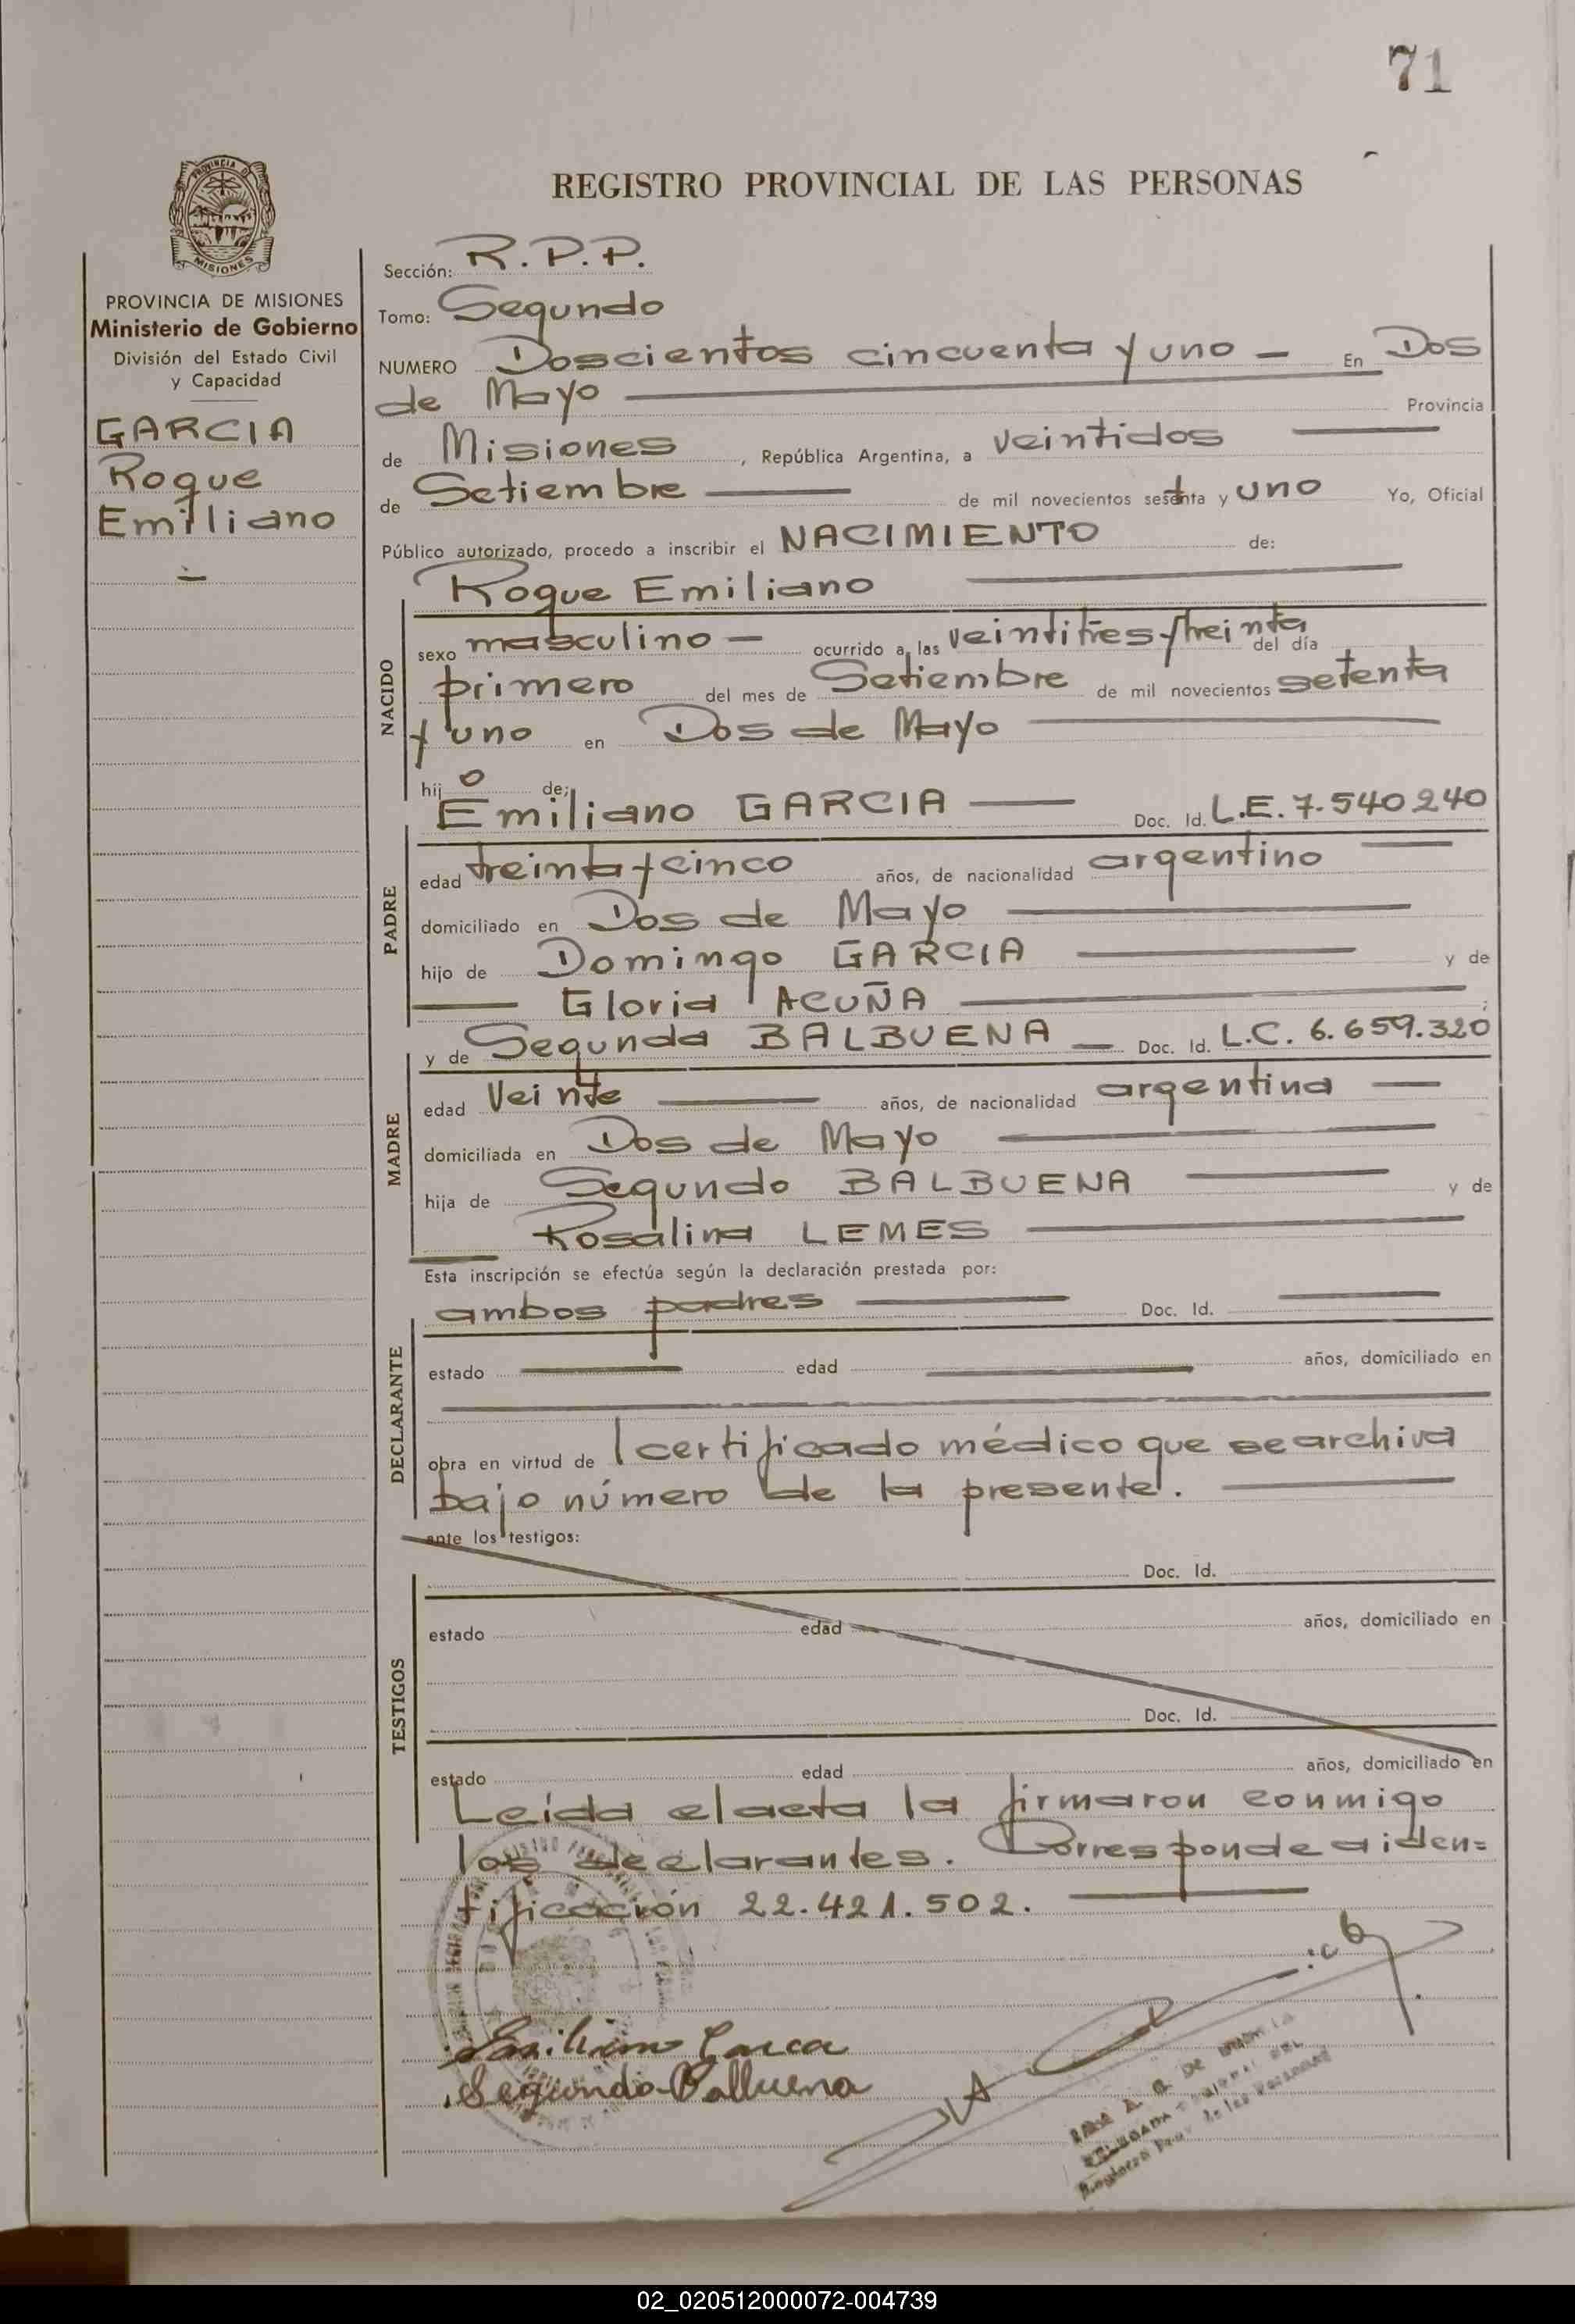 71
REGISTRO PROVINCIAL DE LAS PERSONAS
PROVINCIA DE
MISIONES
PROVINCIA DE MISIONES
Ministerio de Gobierno
División del Estado Civil
y Capacidad
GARCIA
Roque
Emiliano
Sección: R.P.P.
Tomo: Segundo
NUMERO Doscientos cincuenta y uno — En Dos
de Mayo — Provincia
de Misiones, República Argentina, a veintidos —
de Setiembre — de mil novecientos setenta y uno Yo, Oficial
Público autorizado, procedo a inscribir el NACIMIENTO de:
Roque Emiliano —
NACIDO
sexo masculino — ocurrido a las veintitres y treinta del día
primero del mes de Setiembre de mil novecientos setenta
y uno en Dos de Mayo —
hijo de;
Emiliano GARCIA — Doc. Id. L.E. 7.540240
PADRE
edad treinta y cinco años, de nacionalidad argentino —
domiciliado en Dos de Mayo —
hijo de Domingo GARCIA — y de
— Gloria ACUÑA — ;
y de Segunda BALBUENA — Doc. Id. L.C. 6.659.320
MADRE
edad Veinte — años, de nacionalidad argentina —
domiciliada en Dos de Mayo —
hija de Segundo BALBUENA — y de
Rosalina LEMES —
Esta inscripción se efectúa según la declaración prestada por:
ambos padres — Doc. Id. —
DECLARANTE
estado — edad — años, domiciliado en
—
obra en virtud de l certificado médico que se archiva
bajo número de la presente. —
ante los testigos:
Doc. Id.
TESTIGOS
estado edad años, domiciliado en
Doc. Id.
estado edad años, domiciliado en
Leída el acta la firmaron conmigo
los declarantes. Corresponde a iden=
tificación 22.421.502. —
Emiliano Garca
Segunda Balbuena
02_020512000072-004739